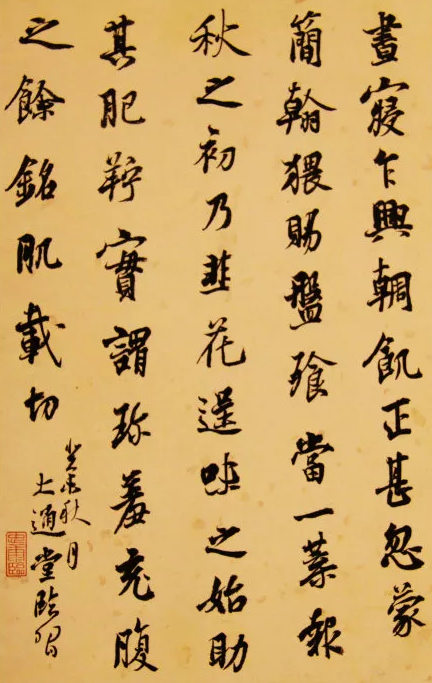 晝寢乍興輖飢正甚忽蒙
簡翰猥賜盤飧當一葉報
秋之初乃韭花逞味之始助
其肥羜實謂珍羞充腹
之餘銘肌載切
未秋月
通堂臨習